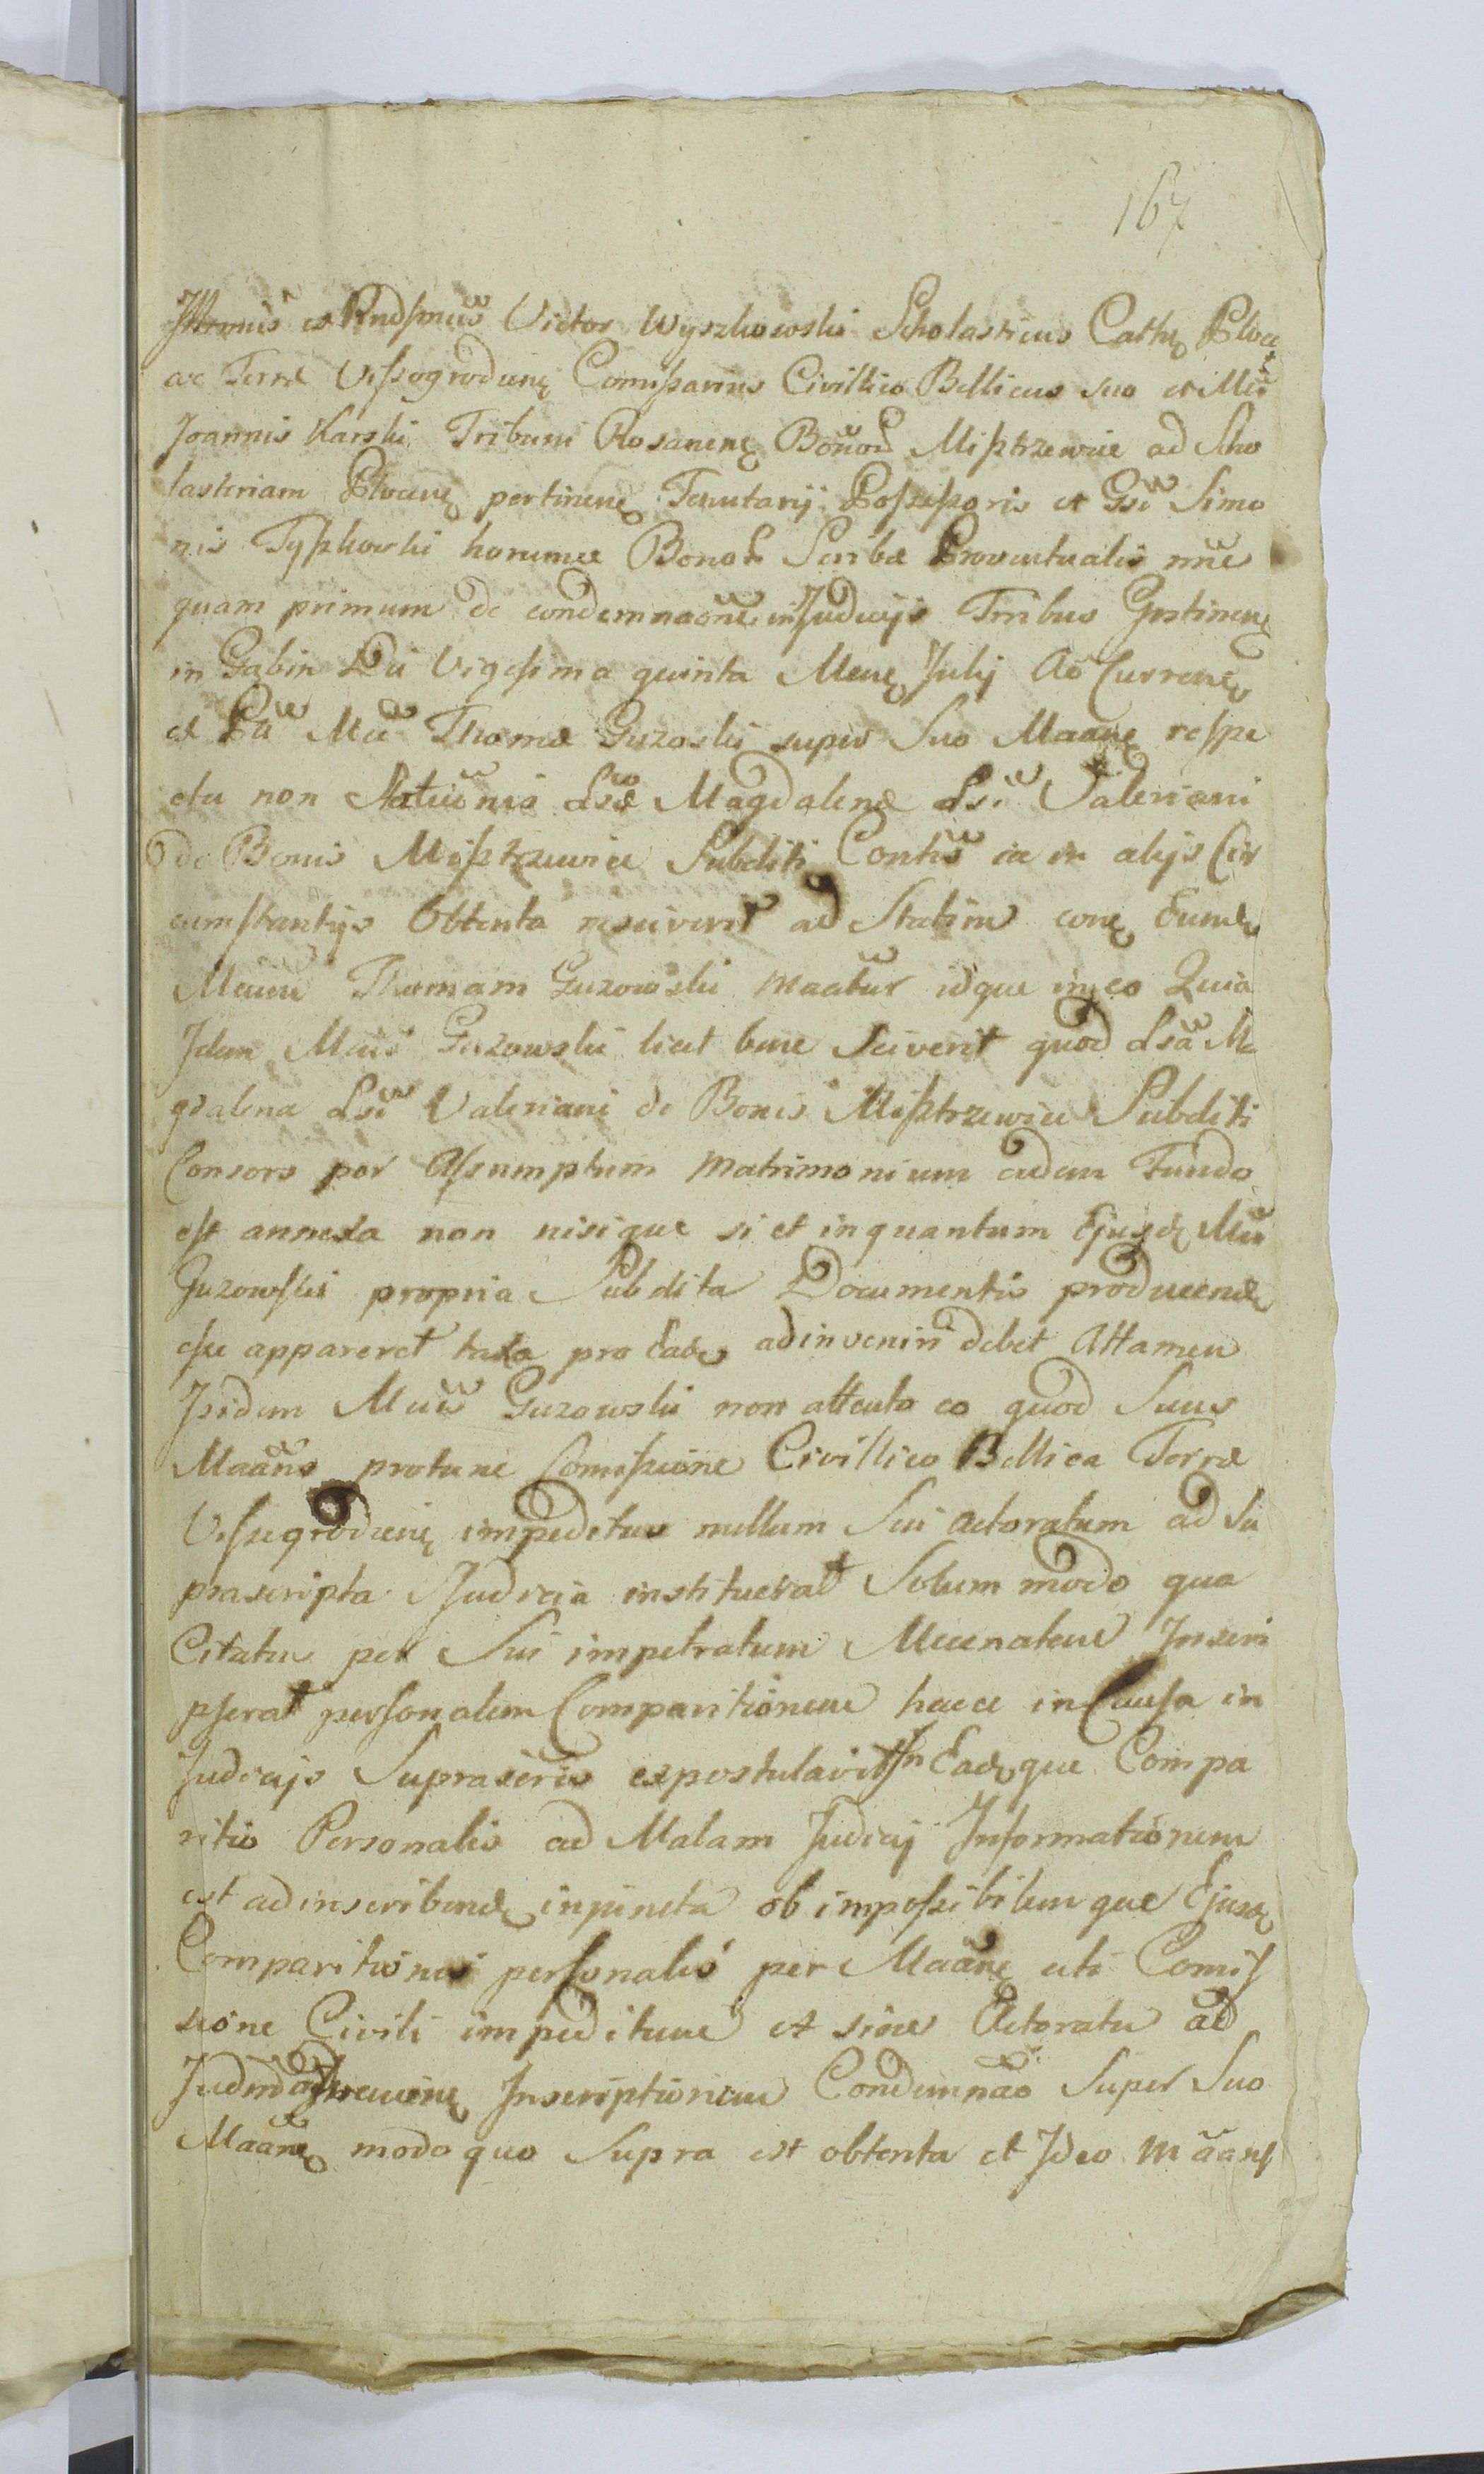 167
Illrmus et Rndsmus Victor Wyszkowski Scholasticus Cathę Płoce
ac Terræ Vissogrodienę Comissarius Civillico Bellicus suo et Mci
Joannis Karski Tribuni Rosanenę Bonor Misztrzewice ad Scho
lasteriam Plocenę pertinenę Tenutarij Possessoris et Gsi Simo
nis Typkowski horumce Bonor Scribæ Proventualis nne
quam primum de condemnaone in Judicijs Trribus Gostinenę
in Gąbin Die Vigesima quinta Menę Julij Ao Currenę
et Mci Thomæ Guzoski super Suo Maanę respe
ctu non Statuonis Lsæ Magdalenæ Lsi Valeriani
de Bonis Misztrzewice Subditi Contis ac in alijs Cir
cumstantijs Obtenta resciverit ad Statim conę Eundę
Mcum Thomam Guzowski maatur idque in eo Quia
Idem Mcus Guzowski licet bene Sciverit quod Lsa Ma
gdalena Lsi Valeriani de Bonis Misztrzewice Subditi
Consors per Assumptum Matrimonium eidem Fundo
est annexa non nisi que si et inquantum Ejusdę Mci
Guzowski propria Subdita Documentis producendę
esse appareret taxa pro Eadę adinveniri debet Attamen
Ipsidem Mcus Guzowski non attento eo quod Suus
Maans protunc Comissione Civillico Bellica Terræ
Vissegrodienę impeditus nullum Sui actoratum ad Su
prascripta Judicia instituerat Solummodo qua
Citatus per Sui impetratum Mecenatem Inscri
pserat personalem Comparitionem hacce in Causa in
Judicijs Suprascris expostulavit In Eadęque Compa
ritio Personalis ad Malam Judicij Informationem
est ad inscribendę injuncta ob impossibilemque Ejusdę
Comparitionis personalis per Maanę uti Comis
sione Civili impeditum et sine Actoratu ad
Inscriptionem Condemnao Super Suo
Maanę modo quo Supra est obtenta et Ideo Maans